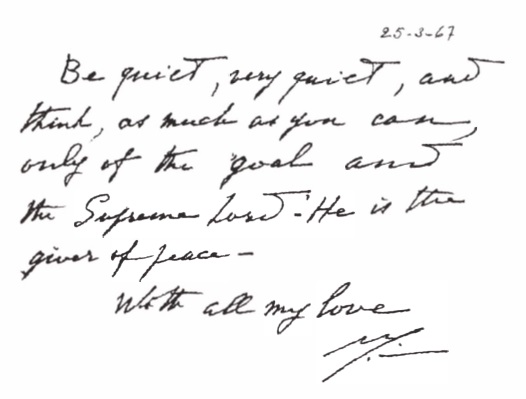 25-3-67
Be quiet, very quiet, and
think, as much as you can,
only of the goal and
the Supreme Lord - He is the
giver of peace -
With all my love
M.